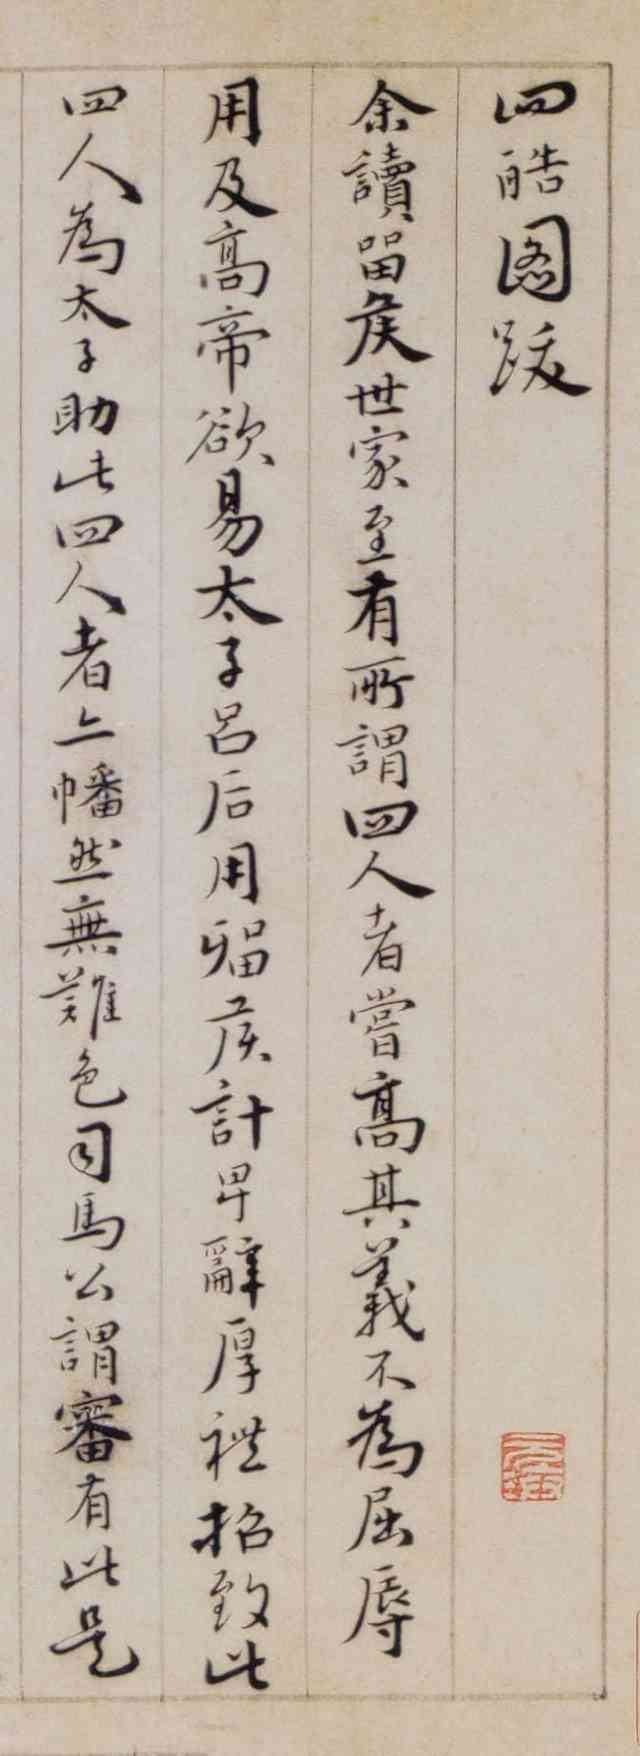 四皓圖跋
余讀留侯世家至有所謂四人者嘗高其義不為屈辱
用及高帝欲易太子呂后用留侯計卑辭厚禮招致此
四人為太子助此四人者亦幡然無難色司馬公謂審有此是